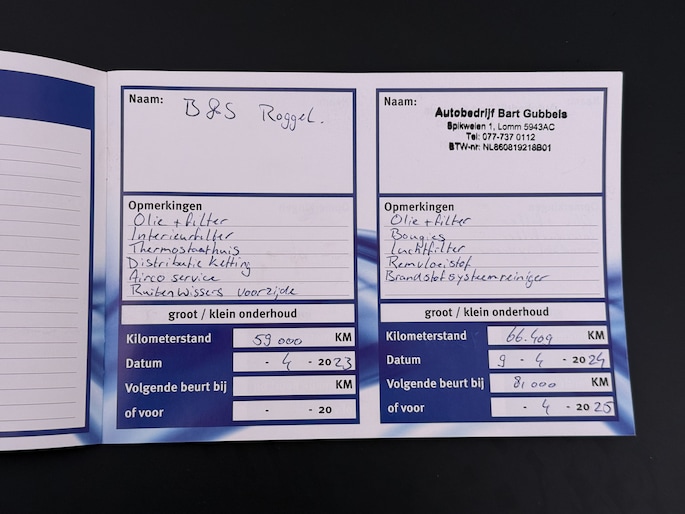 Naam:
B&S Roggel.
Opmerkingen
Olie + filter
Interieurfilter
Thermostaathuis
Distributie ketting
Airco service
Ruitenwissers voorzijde
groot / klein onderhoud
Kilometerstand 59 000 KM
Datum - 4 - 2023
Volgende beurt bij KM
of voor - - 20
Naam:
Autobedrijf Bart Gubbels
Spikweien 1, Lomm 5943AC
Tel: 077-737 0112
BTW-nr: NL860819218B01
Opmerkingen
Olie + filter
Bougies
Luchtfilter
Remvloeistof
Brandstofsysteemreiniger
groot / klein onderhoud
Kilometerstand 66.409 KM
Datum 9 - 4 - 2024
Volgende beurt bij 81000 KM
of voor - 4 - 2025